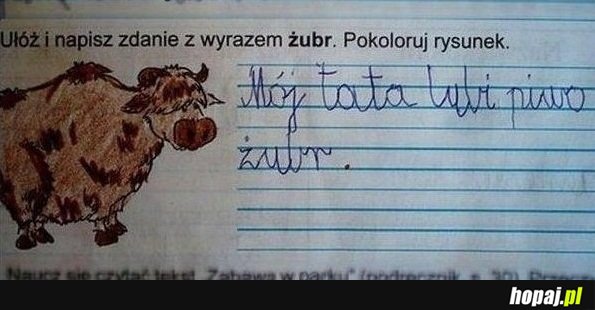 Ułóż i napisz zdanie z wyrazem żubr. Pokoloruj rysunek.
Mój tata lubi piwo
żubr.
Naucz się czytać tekst „Zabawa w parku" (podręcznik, s. 30).
hopaj.pl